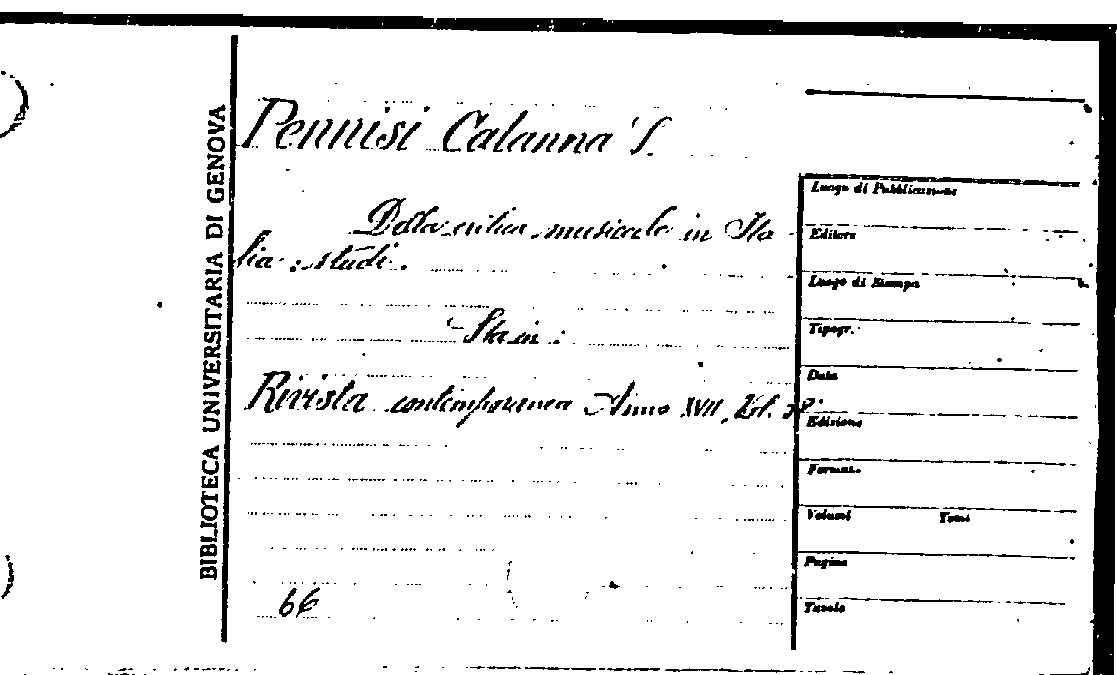 BIBLIOTECA UNIVERSITARIA DI GENOVA
Pennisi Calanna S.
Della critica musicale in Ita-
lia: studi.
Sta in:
Rivista contemporanea Anno XVII, Vol.
66
Luogo di Pubblicazione
Editore
Luogo di Stampa
Tipogr.
Data
Edizione
Format.
Volumi Tomi
Pagine
Tavole